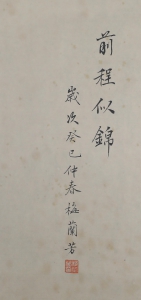 前程似錦
歲次癸巳仲春梅蘭芳